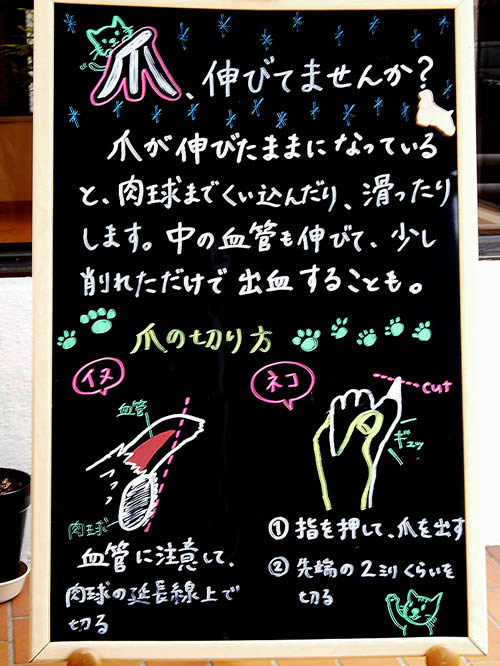 爪、伸びてませんか？
爪が伸びたままになっている
と、肉球までくい込んだり、滑ったり
します。中の血管も伸びて、少し
削れただけで出血することも。
爪の切り方
イヌ
血管
肉球
血管に注意して、
肉球の延長線上で
切る
ネコ
cut
ギュッ
① 指を押して、爪を出す
② 先端の2ミリくらいを
切る